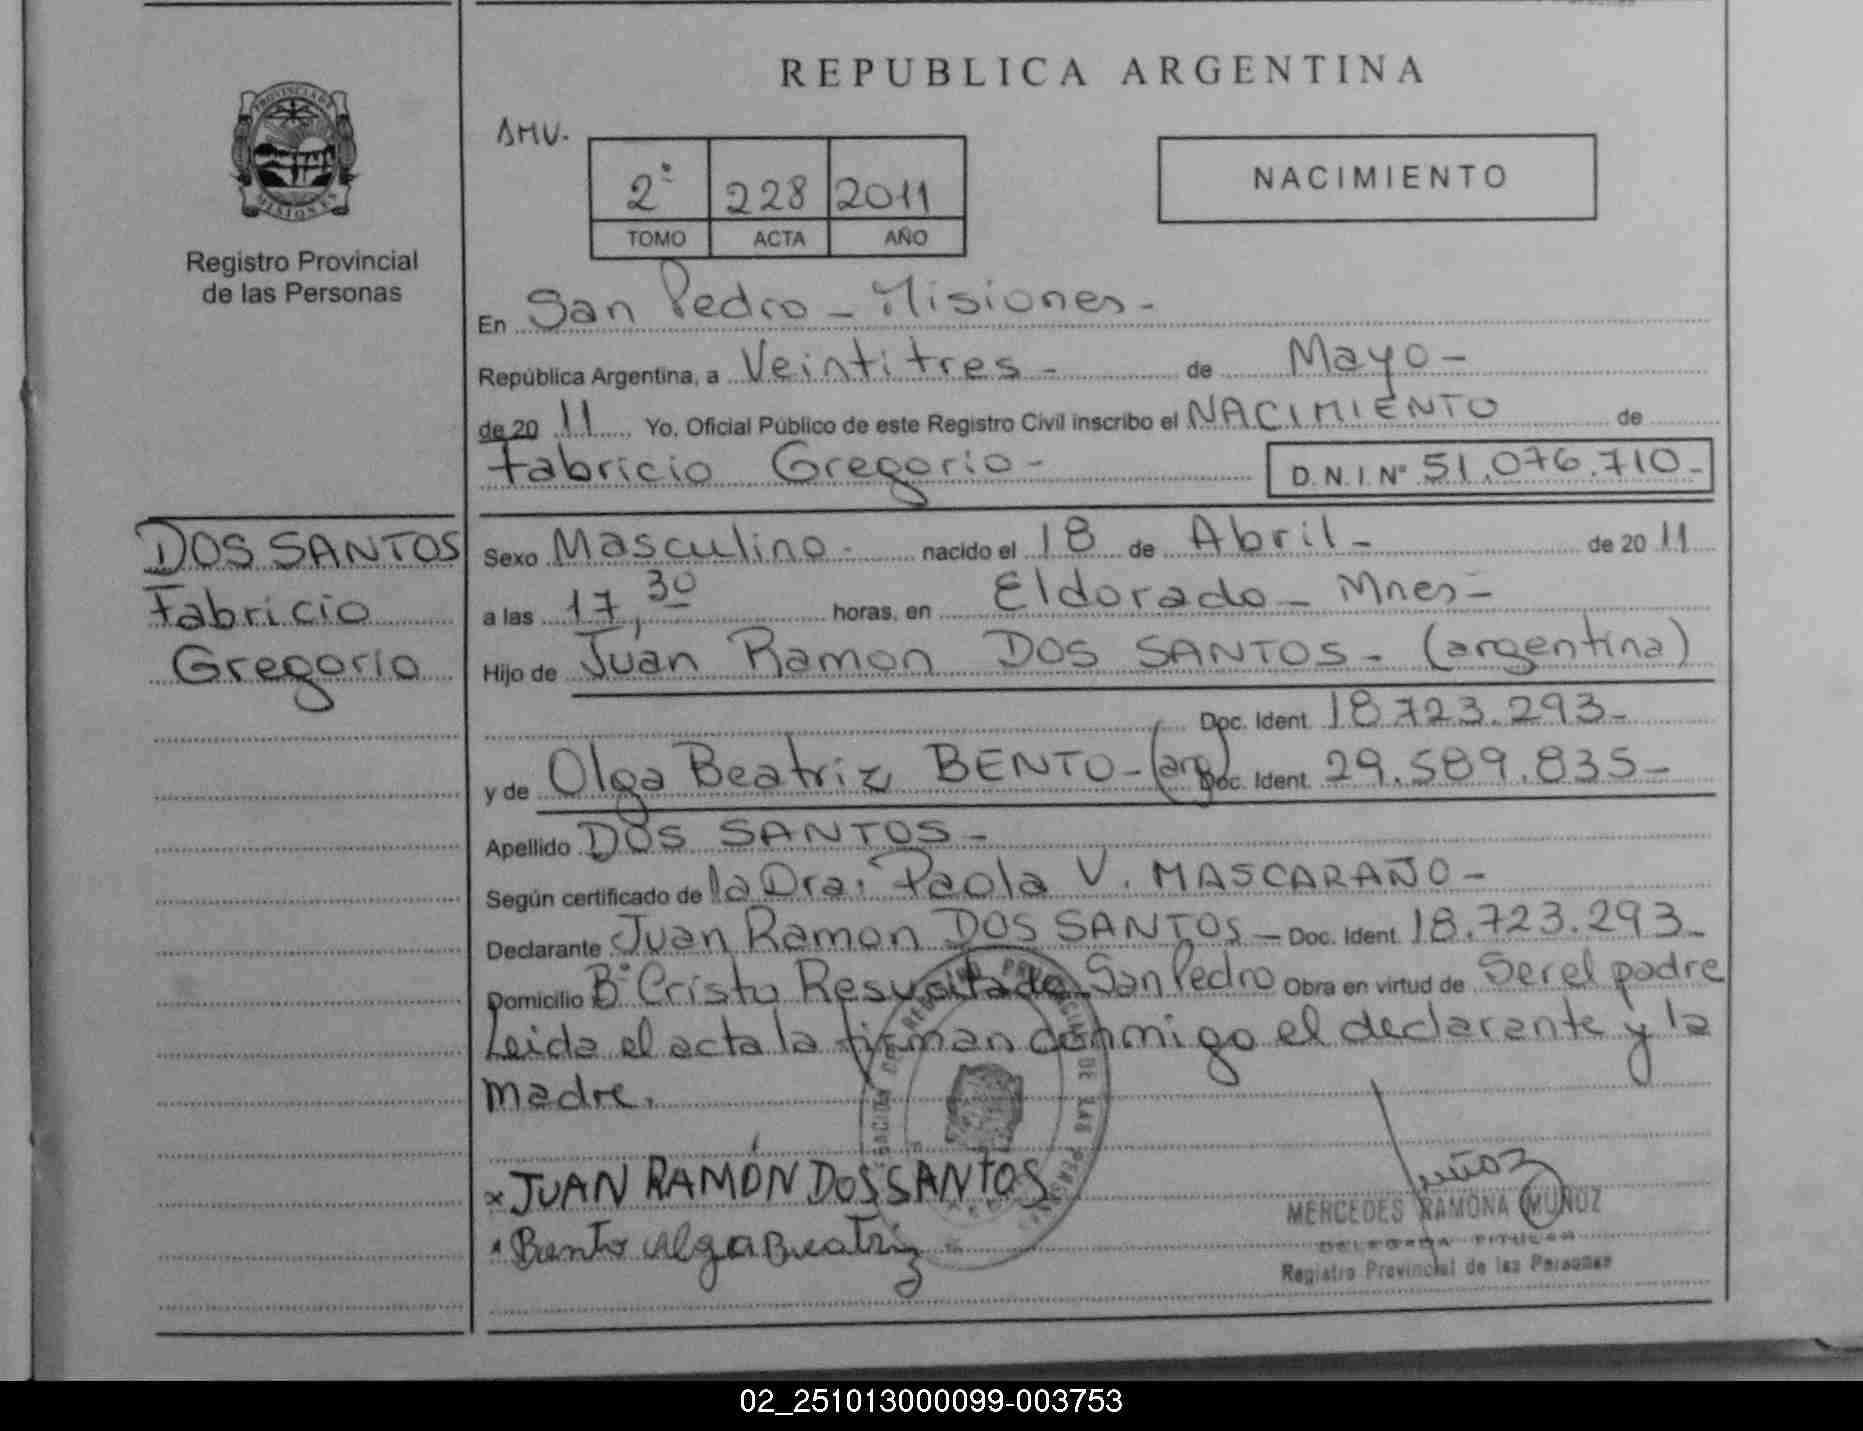 REPUBLICA ARGENTINA
PROVINCIA DE
MISIONES
Registro Provincial
de las Personas
AMV.
2° 228 2011
TOMO ACTA AÑO
NACIMIENTO
En San Pedro - Misiones -
República Argentina, a Veintitres - de Mayo -
de 20 11 Yo, Oficial Público de este Registro Civil inscribo el NACIMIENTO de
Fabricio Gregorio - D.N.I. N° 51.076.710 -
DOS SANTOS
Fabricio
Gregorio
Sexo Masculino - nacido el 18 de Abril - de 20 11
a las 17,30 horas, en Eldorado - Mnes -
Hijo de Juan Ramon DOS SANTOS - (argentina)
Doc. Ident. 18.723.293 -
y de Olga Beatriz BENTO - (arg) Doc. Ident. 29.589.835 -
Apellido DOS SANTOS -
Según certificado de la Dra. Paola V. MASCARAÑO -
Declarante Juan Ramon DOS SANTOS - Doc. Ident. 18.723.293 -
Domicilio B° Cristo Resucitado San Pedro Obra en virtud de Ser el padre
Leida el acta la firman conmigo el declarante y la
madre.
x JUAN RAMÓN DOS SANTOS
Bento Olga Beatriz
Muñoz
MERCEDES RAMONA MUÑOZ
DELEGADA TITULAR
Registro Provincial de las Personas
02_251013000099-003753